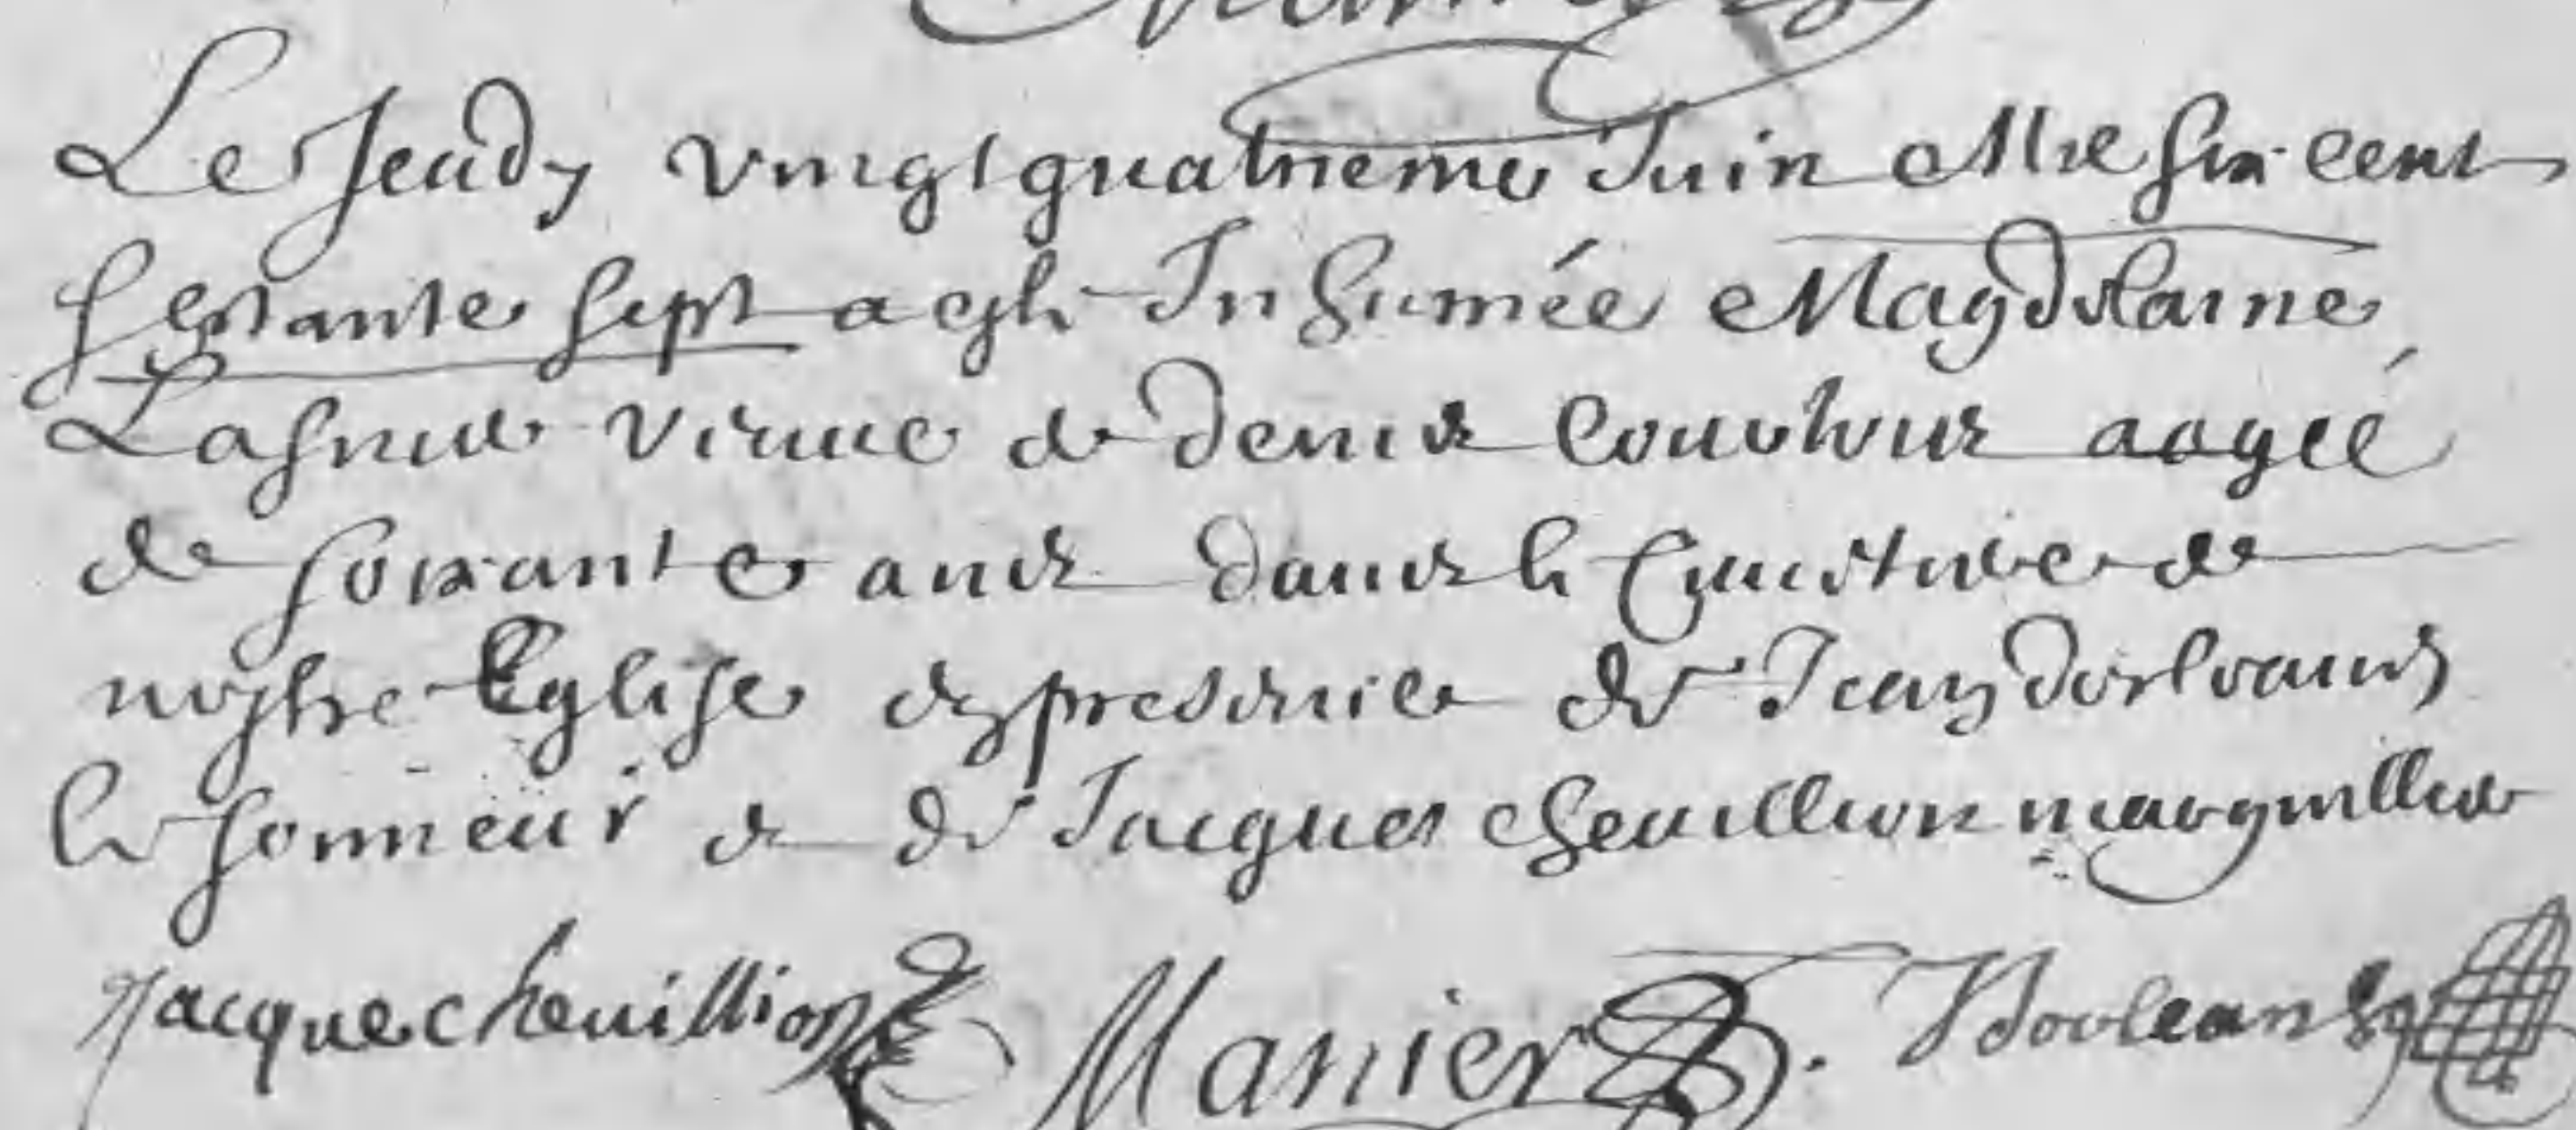 Le Jeudy vingt quatrieme Juin Mil six cent
septante sept a esté Inhumée Magdelaine
Lasnier veuue de Denis aagée
de soixante ans dans le Cymistiere de
nostre Eglise en presence de Jean Dorleans
le sonneur & de Jacques cheuillion marguillier
Jacque cheuillion Manier. J Dorleans